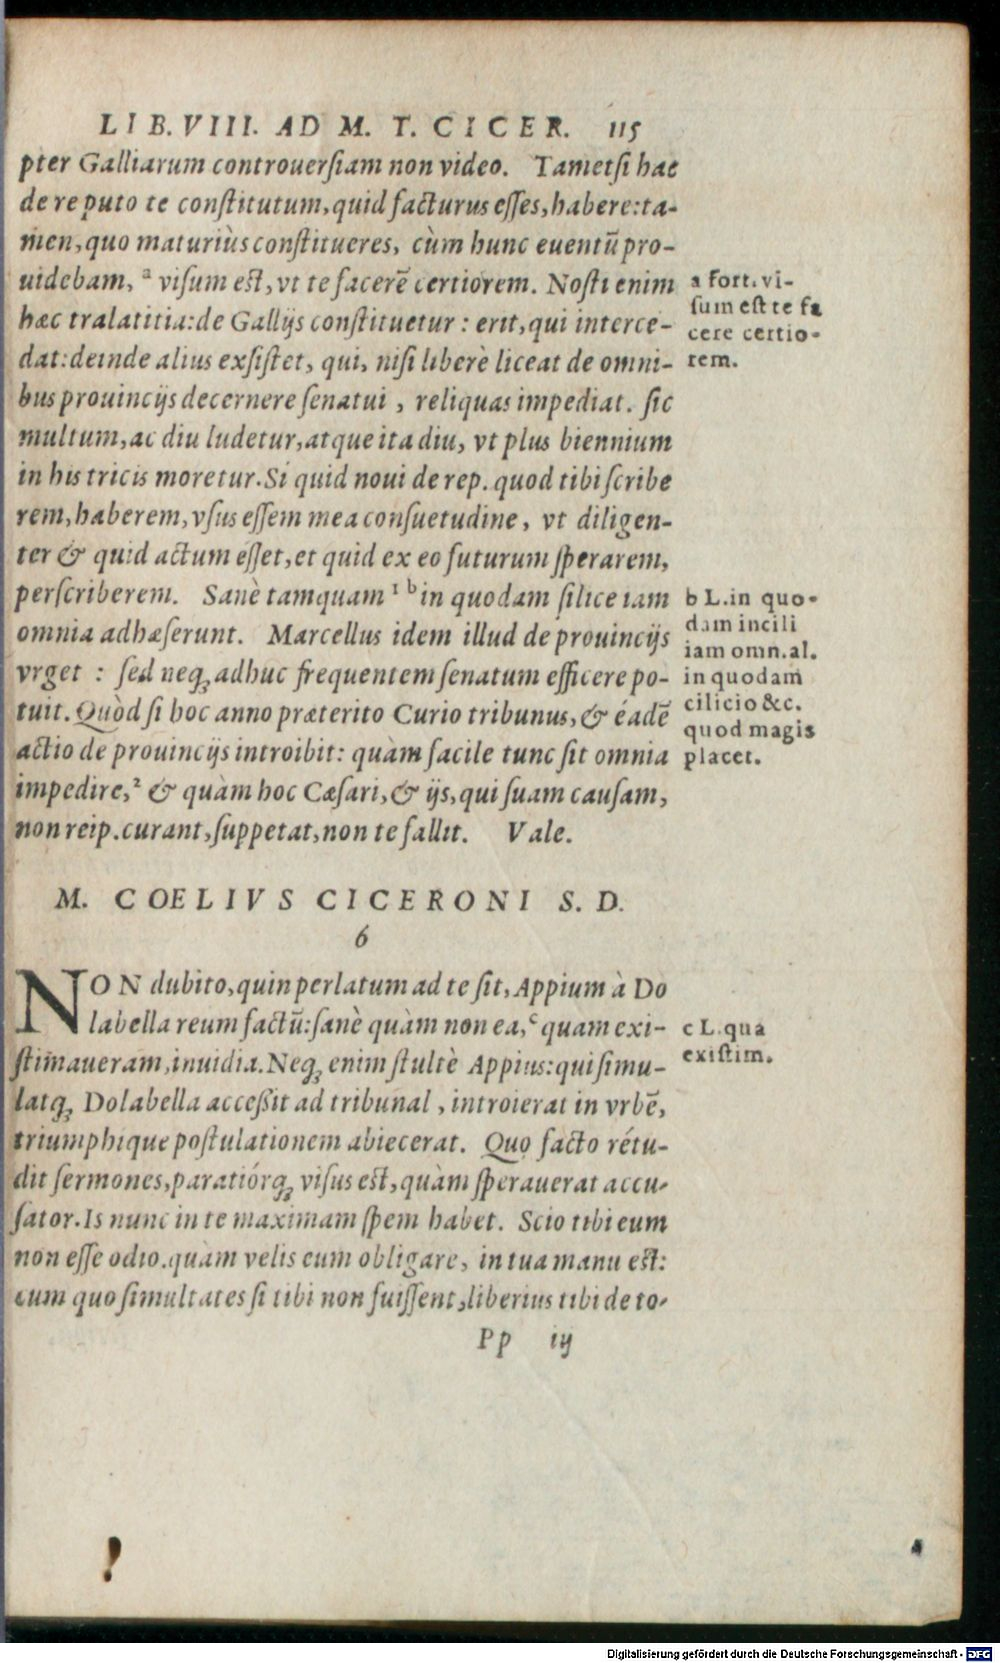 LIB. VIII. AD M. T. CICER. 115
pter Galliarum controuerſiam non video. Tametſi hac
de re puto te conſtitutum, quid facturus eſſes, habere: ta-
men, quo maturiùs conſtitueres, cùm hunc euentū pro-
uidebam, ᵃ viſum est, vt te facerē certiorem. Noſti enim
hæc tralatitia: de Gallijs conſtituetur : erit, qui interce-
dat: deinde alius exſiſtet, qui, niſi liberè liceat de omni-
bus prouincijs decernere ſenatui , reliquas impediat. ſic
multum, ac diu ludetur, atque ita diu, vt plus biennium
in his tricis moretur. Si quid noui de rep. quod tibi ſcribe
rem, haberem, vſus eſſem mea conſuetudine, vt diligen-
ter & quid actum eſſet, et quid ex eo futurum ſperarem,
perſcriberem. Sanè tamquam ¹ ᵇ in quodam ſilice iam
omnia adhæſerunt. Marcellus idem illud de prouincijs
vrget : ſed neq; adhuc frequentem ſenatum efficere po-
tuit. Quòd ſi hoc anno præterito Curio tribunus, & éadē
actio de prouincijs introibit: quàm facile tunc ſit omnia
impedire, ² & quàm hoc Cæſari, & ijs, qui ſuam cauſam,
non reip. curant, ſuppetat, non te fallit. Vale.
a Fort. vi-
ſum eſt te fa
cere certio-
rem.
b L. in quo-
dam incili
iam omn. al.
in quodam
cilicio &c.
quod magis
placet.
M. COELIVS CICERONI S. D.
6
NON dubito, quin perlatum ad te ſit, Appium à Do
labella reum factū: ſanè quàm non ea, ᶜ quam exi-
ſtimaueram, inuidia. Neq; enim ſtultè Appius: qui ſimu-
latq; Dolabella acceßit ad tribunal , introierat in vrbē,
triumphique poſtulationem abiecerat. Quo facto rétu-
dit ſermones, paratiórq; viſus est, quàm ſperauerat accu-
ſator. Is nunc in te maximam ſpem habet. Scio tibi eum
non eſſe odio. quàm velis eum obligare, in tua manu est:
cum quo ſimultates ſi tibi non fuiſſent, liberius tibi de to-
c L. qua
exiſtim.
Pp iij
Digitalisierung gefördert durch die Deutsche Forschungsgemeinschaft - DFG